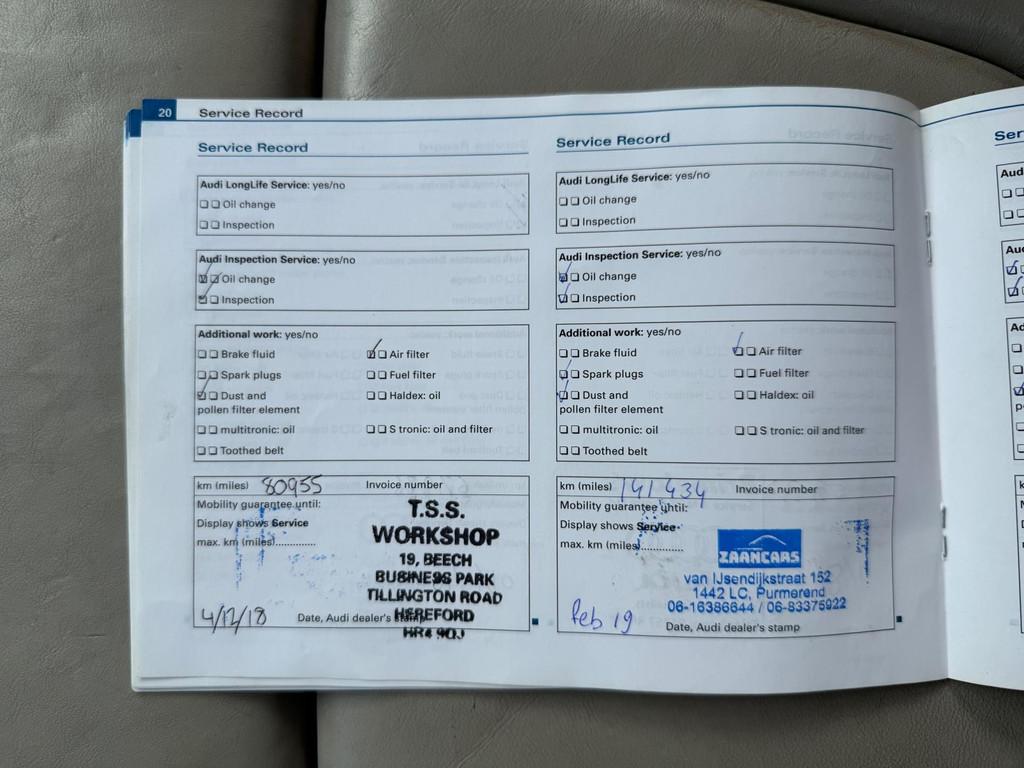 20 Service Record
Service Record
Audi LongLife Service: yes/no
Oil change
Inspection
Audi Inspection Service: yes/no
Oil change
Inspection
Additional work: yes/no
Brake fluid
Air filter
Spark plugs
Fuel filter
Dust and
pollen filter element
Haldex: oil
multitronic: oil
S tronic: oil and filter
Toothed belt
km (miles) 80955 Invoice number
Mobility guarantee until:
Display shows Service
max. km (miles)..............
T.S.S.
WORKSHOP
19, BEECH
BUSINESS PARK
TILLINGTON ROAD
HEREFORD
HR4 9QJ
4/12/18 Date, Audi dealer's stamp
Service Record
Audi LongLife Service: yes/no
Oil change
Inspection
Audi Inspection Service: yes/no
Oil change
Inspection
Additional work: yes/no
Brake fluid
Air filter
Spark plugs
Fuel filter
Dust and
pollen filter element
Haldex: oil
multitronic: oil
S tronic: oil and filter
Toothed belt
km (miles) 141 434 Invoice number
Mobility guarantee until:
Display shows Service
max. km (miles)..............
ZAANCARS
van IJsendijkstraat 152
1442 LC, Purmerend
06-16386644 / 06-83375922
feb 19 Date, Audi dealer's stamp
Ser
Aud
Au